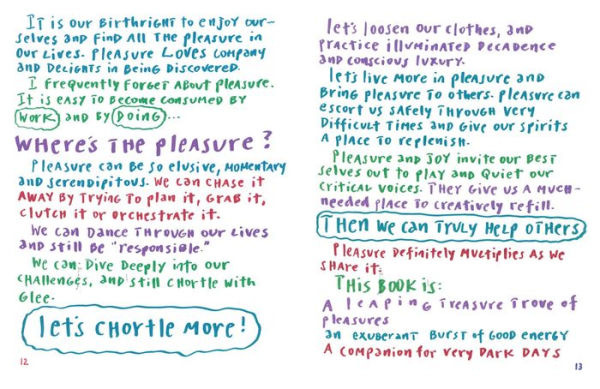 It is our Birthright to enjoy our-
selves and find All the pleasure in
our lives. Pleasure Loves company
and Delights in Being Discovered.
I frequently forget About pleasure.
It is easy to become consumed by
work and by Doing...
Where's the pleasure?
Pleasure can be so elusive, momentary
and serendipitous. We can chase it
away by trying to plan it, grab it,
clutch it or orchestrate it.
We can Dance through our lives
and still be "responsible."
We can: Dive Deeply into our
challenges, and still chortle with
Glee.
let's chortle more!
12
let's loosen our clothes, and
practice illuminated Decadence
and conscious luxury.
let's live more in pleasure and
Bring pleasure to others. Pleasure can
escort us safely through very
Difficult times and give our spirits
A place to replenish.
Pleasure and Joy invite our Best
selves out to play and Quiet our
critical voices. They Give us a much-
needed place to creatively refill.
Then we can truly Help others
Pleasure Definitely Multiplies as we
share it.
This Book is:
A leaping treasure trove of
pleasures
an exuberant Burst of Good energy
A companion for very Dark Days
13